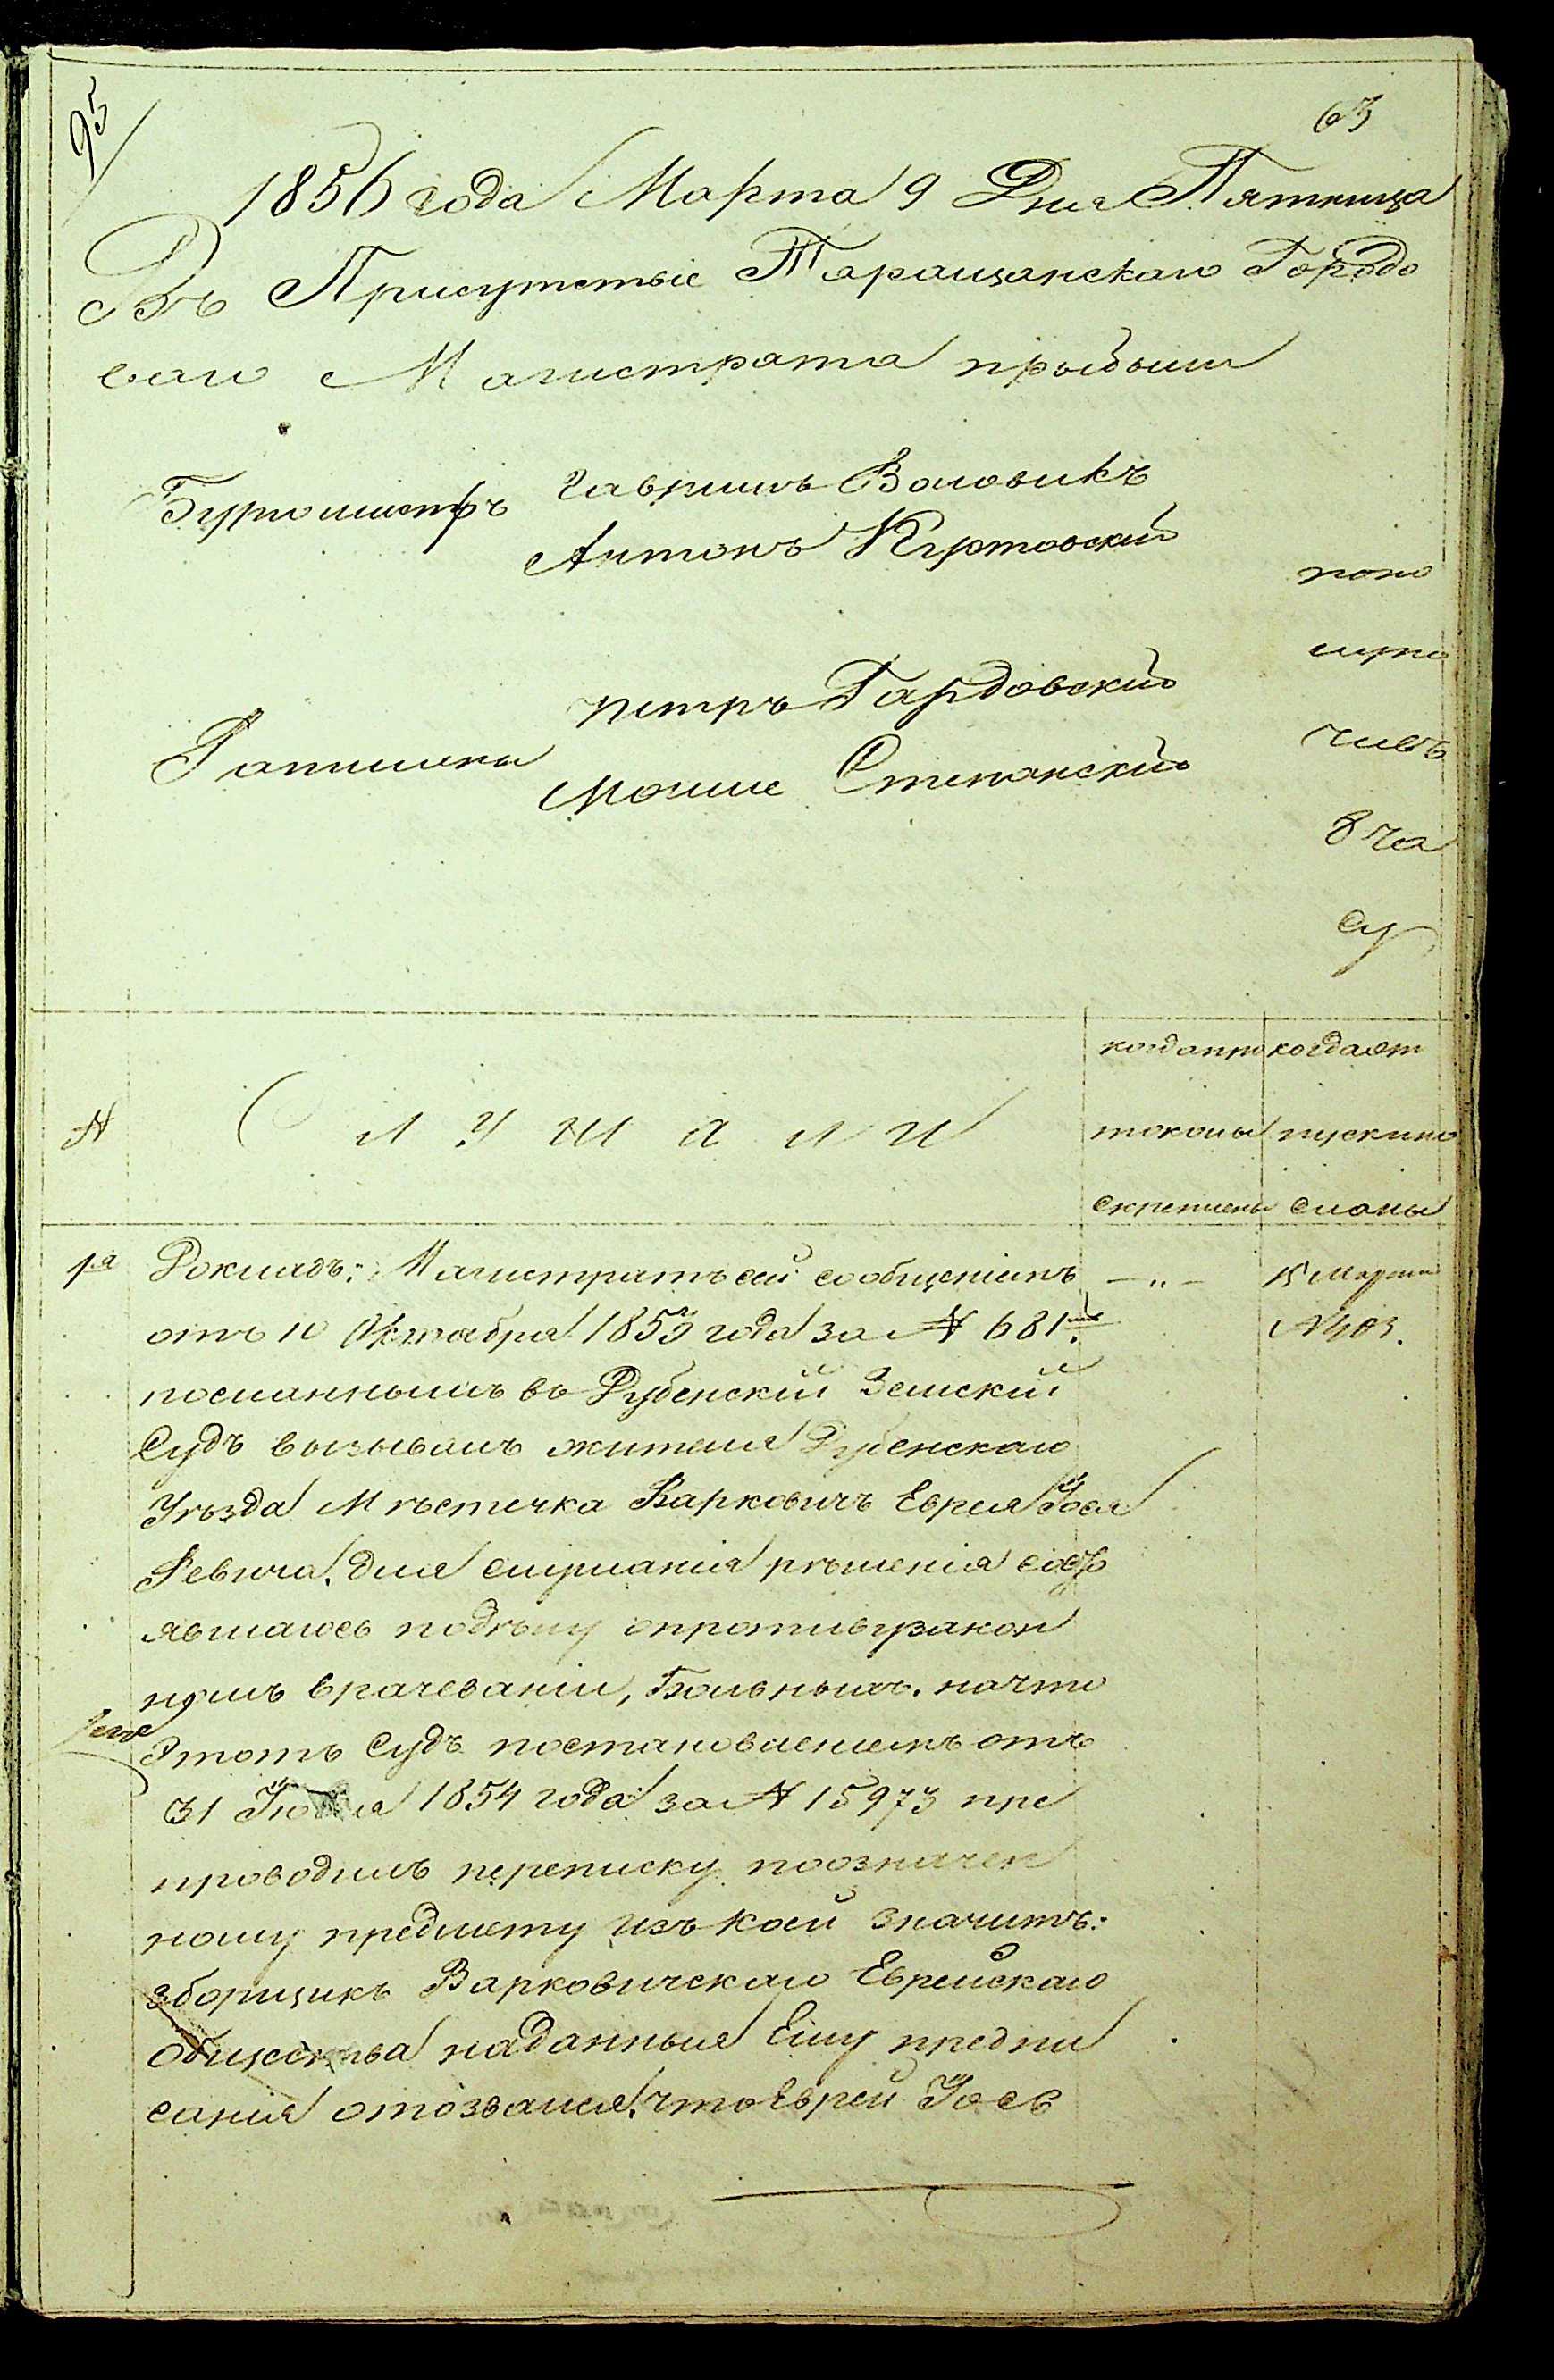 95
63
1856 года Марта 9 Дня Пятница
Въ Присутствіе Таращанскаго Городо
ваго Магистрата прыбыли
Бургомистръ
Гаврилъ Воловикъ
Антонъ
Ратманы
Петръ Гардовскій
Мошко Степанскій
попо
лупо
чивъ
8 ча
су
№
С л у ш а л и
когда про
токолы
скреплены
когда от
пускипо
сланы
1я Докладъ: Магистратъ сей сообщеніемъ — „ — 15 Марта
отъ 10 Октября 1853 года за № 681мъ № 403.
посланнымъ въ Дубенскій Земскій
Судъ вызывалъ жителя Дубенскаго
Уѣзда Мѣстечка Варковичъ Еврея Іося
Ревича, для слушанія рѣшенія состо
явшагось подѣлу опротивузакон
номъ врачеваніи, Больныхъ. начто
Этотъ Судъ постановленіемъ отъ
31 Іюля 1854 года за № 15973 пре
проводилъ переписку поозначен
ному предмету изъ коей значитъ:
зборщикъ Варковичскаго Еврейскаго
общества наданныя Ему предпи
санія отозвался, что Еврей Іось